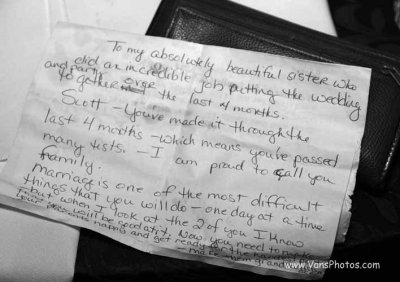 To my absolutely beautiful sister who
did an incredible job putting the wedding
and party orge
together the last 4 months.
Scott - You've made it through the
last 4 months - which means you've passed
many tests. - I am proud to call you
family.
marriage is one of the most difficult
things that you will do - one day at a time
but when I look at the 2 of you I know
you'll be good at it. Now you need to
your parents happy and get ready for the
www.VansPhotos.com